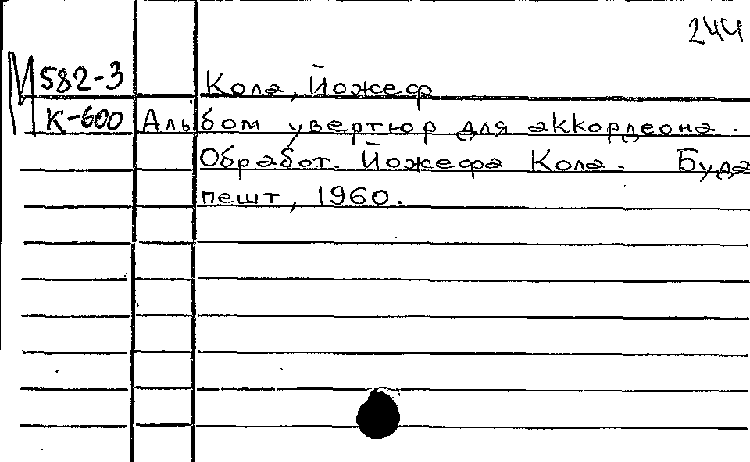 244
М 582-3 Кола, Йожеф
К-600 Альбом увертюр для аккордеона.
Обработ. Йожефа Кола. Буда
пешт, 1960.